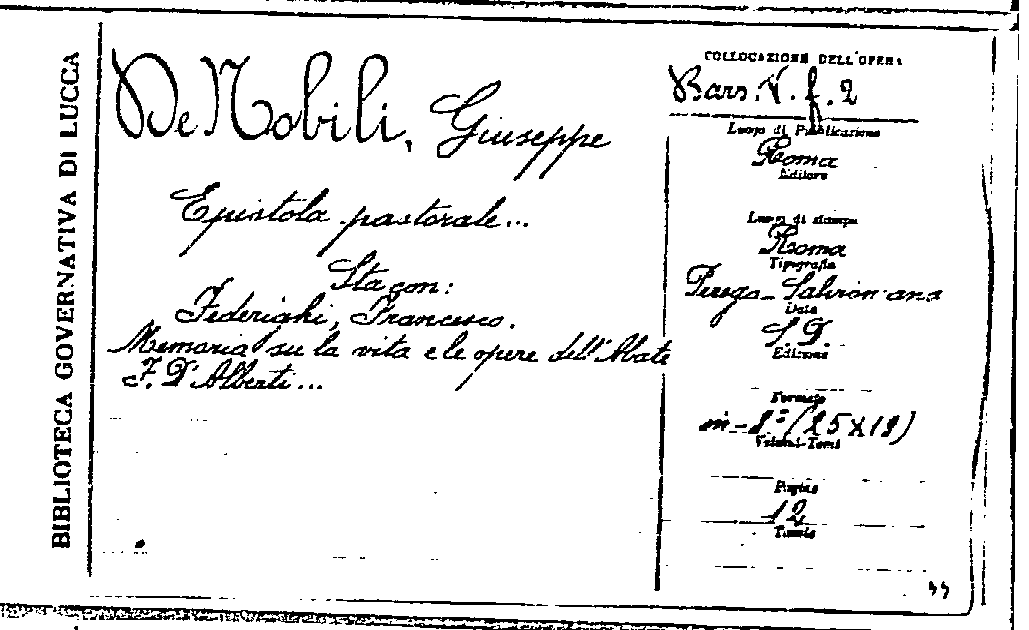 BIBLIOTECA GOVERNATIVA DI LUCCA
De Nobili, Giuseppe
Epistola pastorale...
Sta con:
Federighi, Francesco.
Memoria su la vita e le opere dell'Abate
F. D'Alberti...
COLLOCAZIONE DELL'OPERA
Bars. V. f. 2
Luogo di Pubblicazione
Roma
Editore
Luogo di stampa
Roma
Tipografia
Perego-Salvioniana
Data
S. D.
Edizione
Formato
in-8° (25x19)
Volumi-Tomi
Pagine
12
Tavole